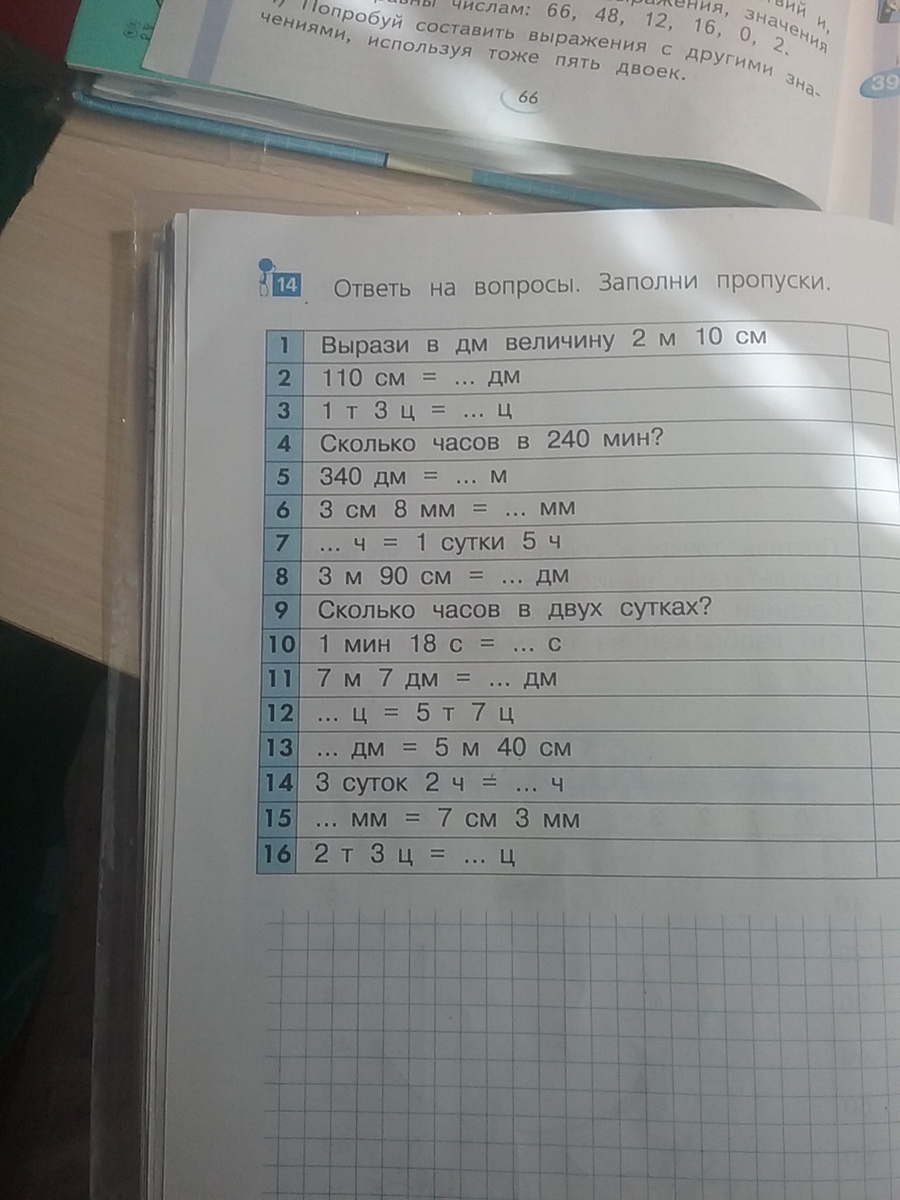 числам: 66, 48, 12, 16, 0, 2.
Попробуй составить выражения с другими зна-
чениями, используя тоже пять двоек.
66
39
14 Ответь на вопросы. Заполни пропуски.
1 Вырази в дм величину 2 м 10 см
2 110 см = ... дм
3 1 т 3 ц = ... ц
4 Сколько часов в 240 мин?
5 340 дм = ... м
6 3 см 8 мм = ... мм
7 ... ч = 1 сутки 5 ч
8 3 м 90 см = ... дм
9 Сколько часов в двух сутках?
10 1 мин 18 с = ... с
11 7 м 7 дм = ... дм
12 ... ц = 5 т 7 ц
13 ... дм = 5 м 40 см
14 3 суток 2 ч = ... ч
15 ... мм = 7 см 3 мм
16 2 т 3 ц = ... ц